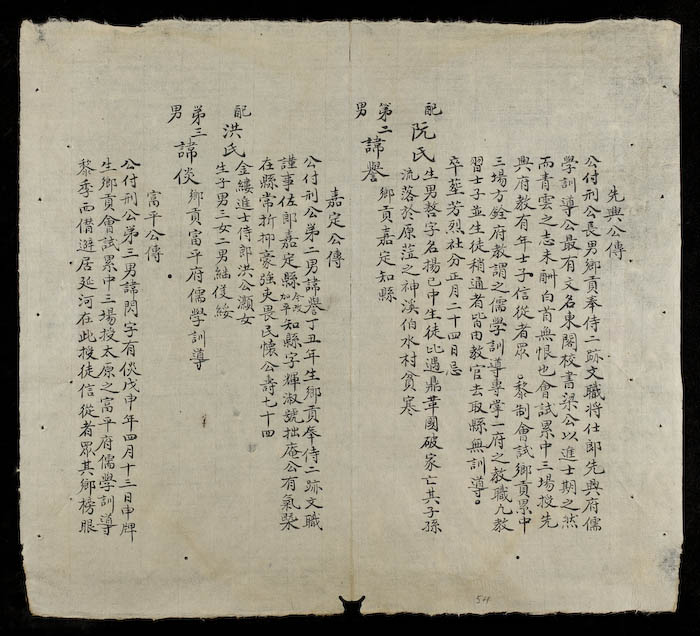 先興公傳
公付刑公長男鄉貢奉侍二跡文職將仕郎先興府儒
學訓導公最有文名東閣校書梁公以進士期之然
而青雲之志未酬白首無恨也會試累中三場授先
興府教有年士子信從者眾黎制會試鄉貢累中
三場方銓府教謂之儒學訓導專掌一府之教職凡教
習士子並生徒稍通者皆由教官去取縣無訓導
卒葬芳烈社分正月二十四日忌
配阮氏生男誓字名揚已中生徒比遇鼎革國破家亡其子孫
流落於原蒞之神溪伯水村貧寒
第二男諱譽鄉貢嘉定知縣
嘉定公傳
公付刑公第二男諱譽丁丑年生鄉貢奉侍二跡文職
謹事佐郎嘉定縣今改加平知縣字輝淑號拙庵公有氣槩
在縣常折抑豪強吏畏民懷公壽七十四
配洪氏金縷進士侍郎洪公灝女
生子男三女二男紬伎綏
第三男諱倓鄉貢富平府儒學訓導
富平公傳
公付刑公第三男諱閃字有倓戊申年四月十三日申牌
生鄉貢會試累中三場授太原之富平府儒學訓導
黎季西僭避居延河在此授徒信從者眾其鄉榜眼
54